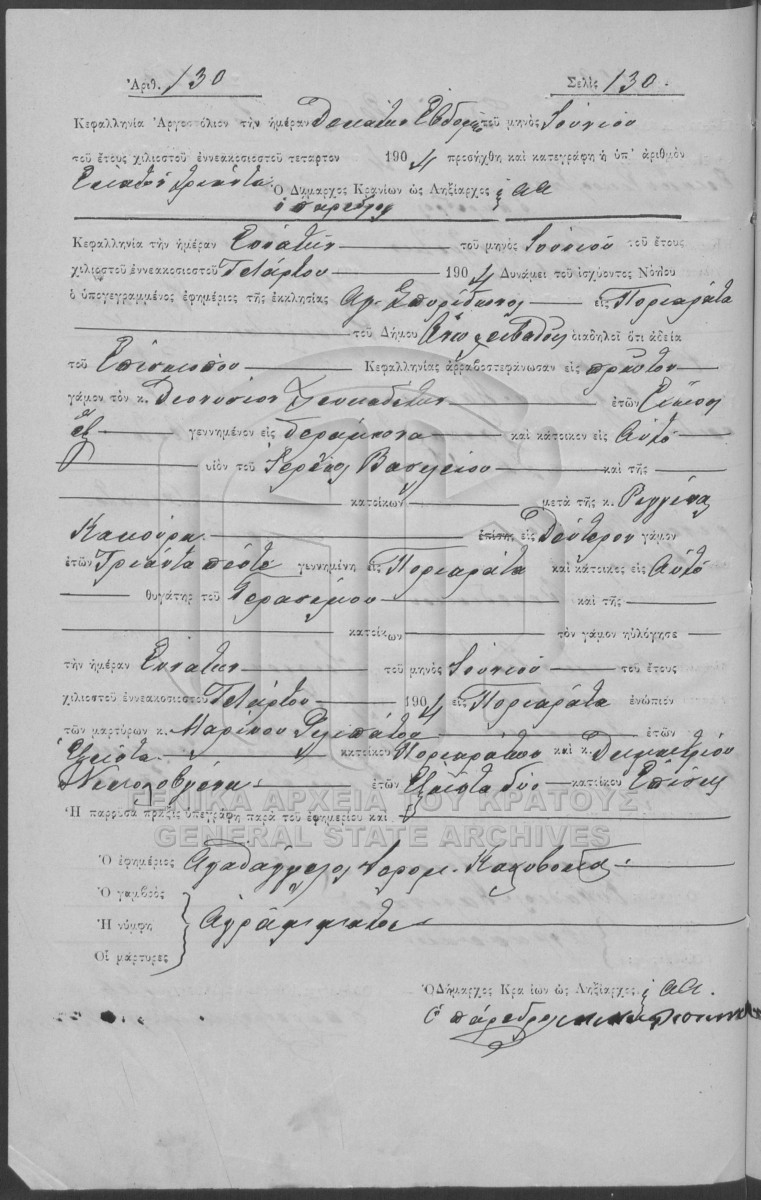 Ἀριθ. 130 Σελὶς 130.
Κεφαλληνία Ἀργοστόλιον τὴν ἡμέραν Δεκάτην Ἑβδόμην τοῦ μηνὸς Ἰουνίου
τοῦ ἔτους χιλιοστοῦ ἐννεακοσιοστοῦ τεταρτον 1904 προσήχθη καὶ κατεγράφη ἡ ὑπ' ἀριθμὸν
Ἑκατὸν τριάντα Ὁ Δήμαρχος Κρανίων ὡς Ληξίαρχος
ὁ πάρεδρος
Κεφαλληνία τὴν ἡμέραν Ἐννάτην τοῦ μηνὸς Ἰουνίου τοῦ ἔτους
χιλιοστοῦ ἐννεακοσιοστοῦ Τετάρτου 1904 Δυνάμει τοῦ ἰσχύοντος Νόμου
ὁ ὑπογεγραμμένος ἐφημέριος τῆς ἐκκλησίας Αγ. Σπυρίδωνος εἰς Ποριαράτα
τοῦ Δήμου διαδηλοῖ ὅτι ἀδεία
τοῦ Ἐπισκόπου Κεφαλληνίας ἀρραβοστεφάνωσαν εἰς πρῶτον
γάμον τὸν κ. Διονύσιον ἐτῶν Εἴκοσι
ἓξ γεννημένον εἰς καὶ κάτοικον εἰς Αὐτό
υἱὸν τοῦ Ἱερέως Βασιλείου καὶ τῆς
κατοίκων μετὰ τῆς κ. Ρεγγίνας
Κακούρη ἐπίσης εἰς Δεύτερον γάμον
ἐτῶν Τριάντα πέντε γεννημένη εἰς Ποριαράτα καὶ κάτοικος εἰς Αὐτό
θυγάτηρ τοῦ Γερασίμου καὶ τῆς
κατοίκων τὸν γάμον ηὐλόγησε
τὴν ἡμέραν Ἐννάτην τοῦ μηνὸς Ἰουνίου τοῦ ἔτους
χιλιοστοῦ ἐννεακοσιοστοῦ Τετάρτου 1904 εἰς Ποριαράτα ἐνώπιον
τῶν μαρτύρων κ. Μαρίνου Φιλιππάτου ἐτῶν
Ἑξῆντα κατοίκου Ποριαράτων καὶ κ. Δημητρίου
ἐτῶν Ἑξῆντα δύο κατοίκου Ἐπίσης
Ἡ παρροῦσα πρᾶξις ὑπεγράφη παρὰ τοῦ ἐφημερίου καὶ
ΓΕΝΙΚΑ ΑΡΧΕΙΑ ΤΟΥ ΚΡΑΤΟΥΣ
GENERAL STATE ARCHIVES
Ὁ ἐφημέριος Αγαθάγγελος
Ὁ γαμβρὸς
Ἡ νύμφη Ἀγράμματος
Οἱ μάρτυρες
Ὁ Δήμαρχος Κρα ίων ὡς Ληξίαρχος
Ὁ πάρεδρος